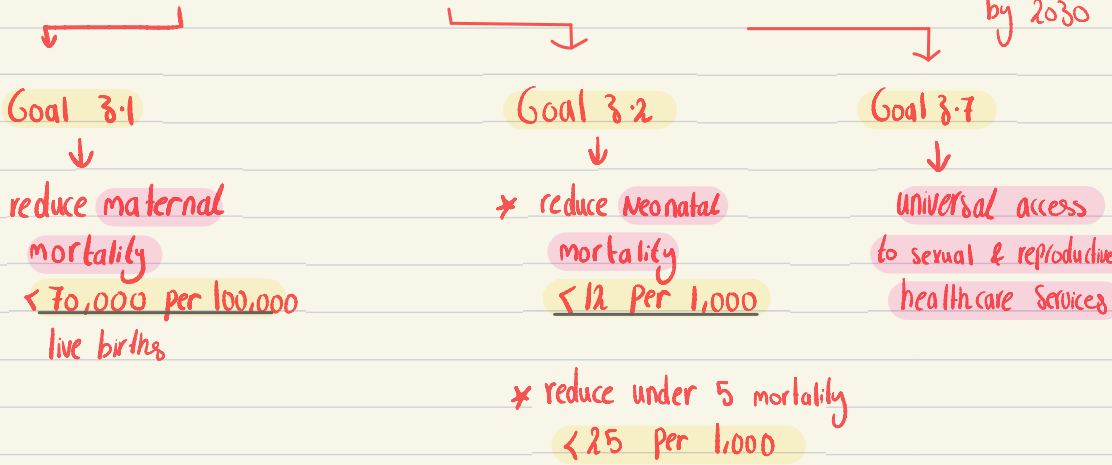 by 2030
Goal 3.1
reduce maternal
mortality
< 70,000 per 100,000
live births
Goal 3.2
* reduce Neonatal
mortality
< 12 per 1,000
* reduce under 5 mortality
< 25 per 1,000
Goal 3.7
universal access
to sexual & reproductive
healthcare services